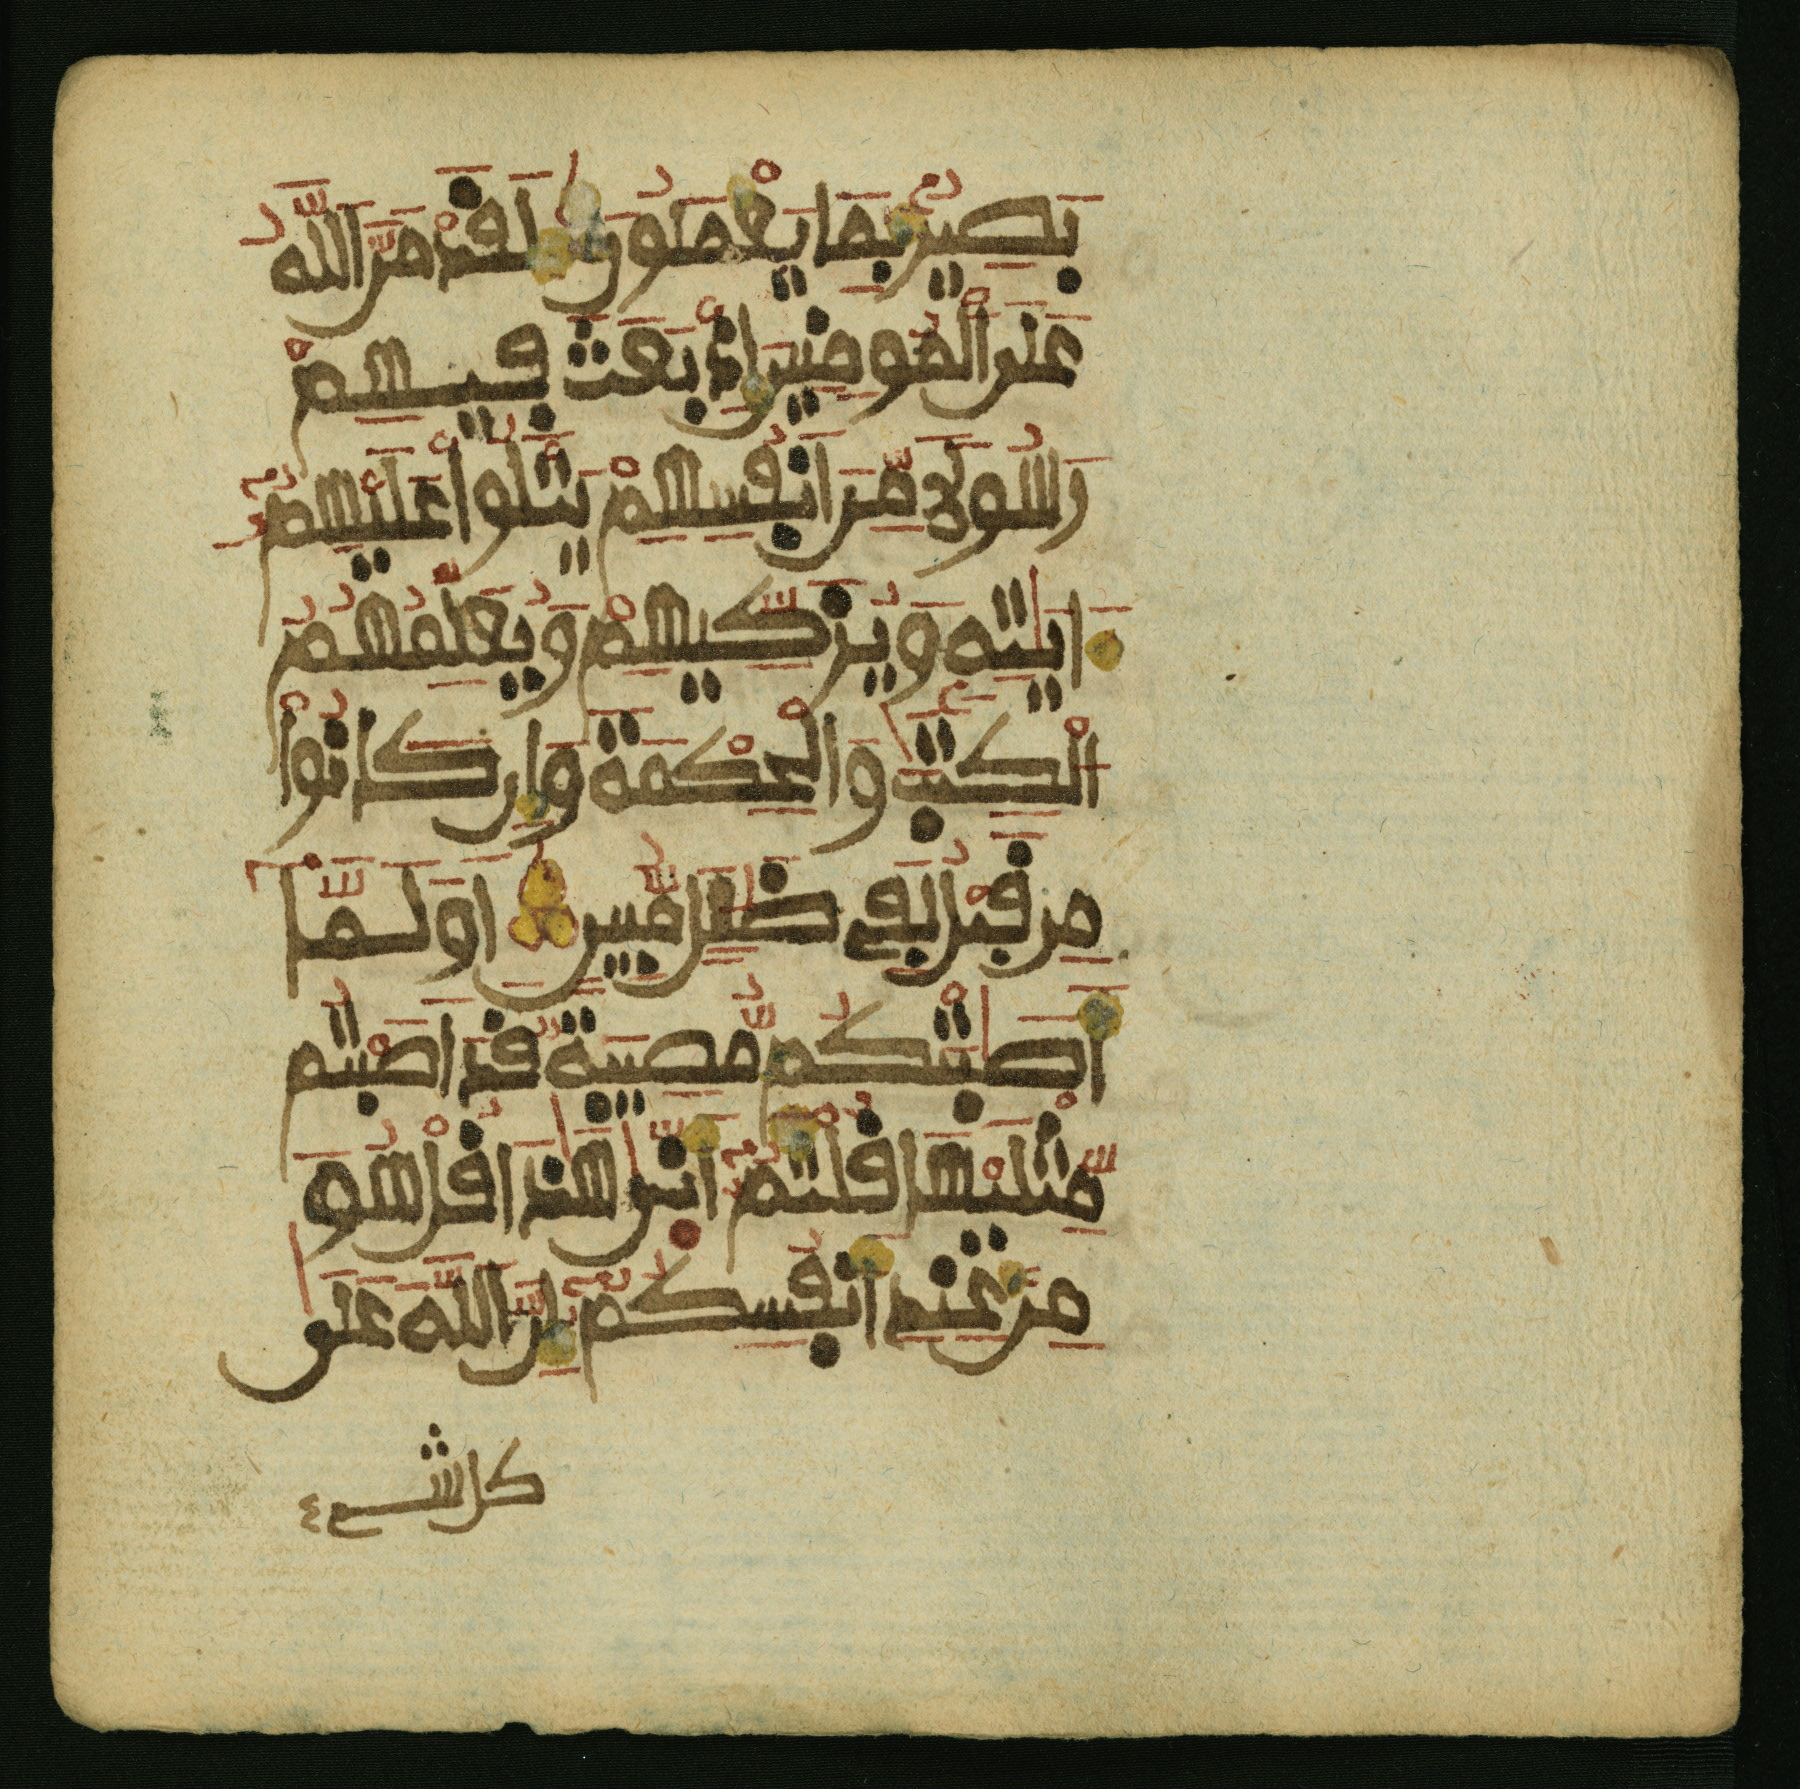 بَصِيرٌ بِمَا يَعْمَلُونَ لَقَدْ مَنَّ اللَّهُ
عَلَى الْمُومِنِينَ إِذْ بَعَثَ فِيهِمْ
رَسُولًا مِّنَ انفُسِهِمْ يَتْلُوا عَلَيْهِمُ
ءَايَٰتِهِ وَيُزَكِّيهِمْ وَيُعَلِّمُهُمُ
الْكِتَٰبَ وَالْحِكْمَةَ وَإِن كَانُوا
مِن قَبْلُ لَفِي ضَلَٰلٍ مُّبِينٍ اَوَلَمَّا
أَصَٰبَتْكُم مُّصِيبَةٌ قَدَ اصَبْتُم
مِّثْلَيْهَا قُلْتُمُ أَنَّىٰ هَٰذَا قُلْ هُوَ
مِنْ عِندِ أَنفُسِكُمُ إِنَّ اللَّهَ عَلَىٰ
كل شيء